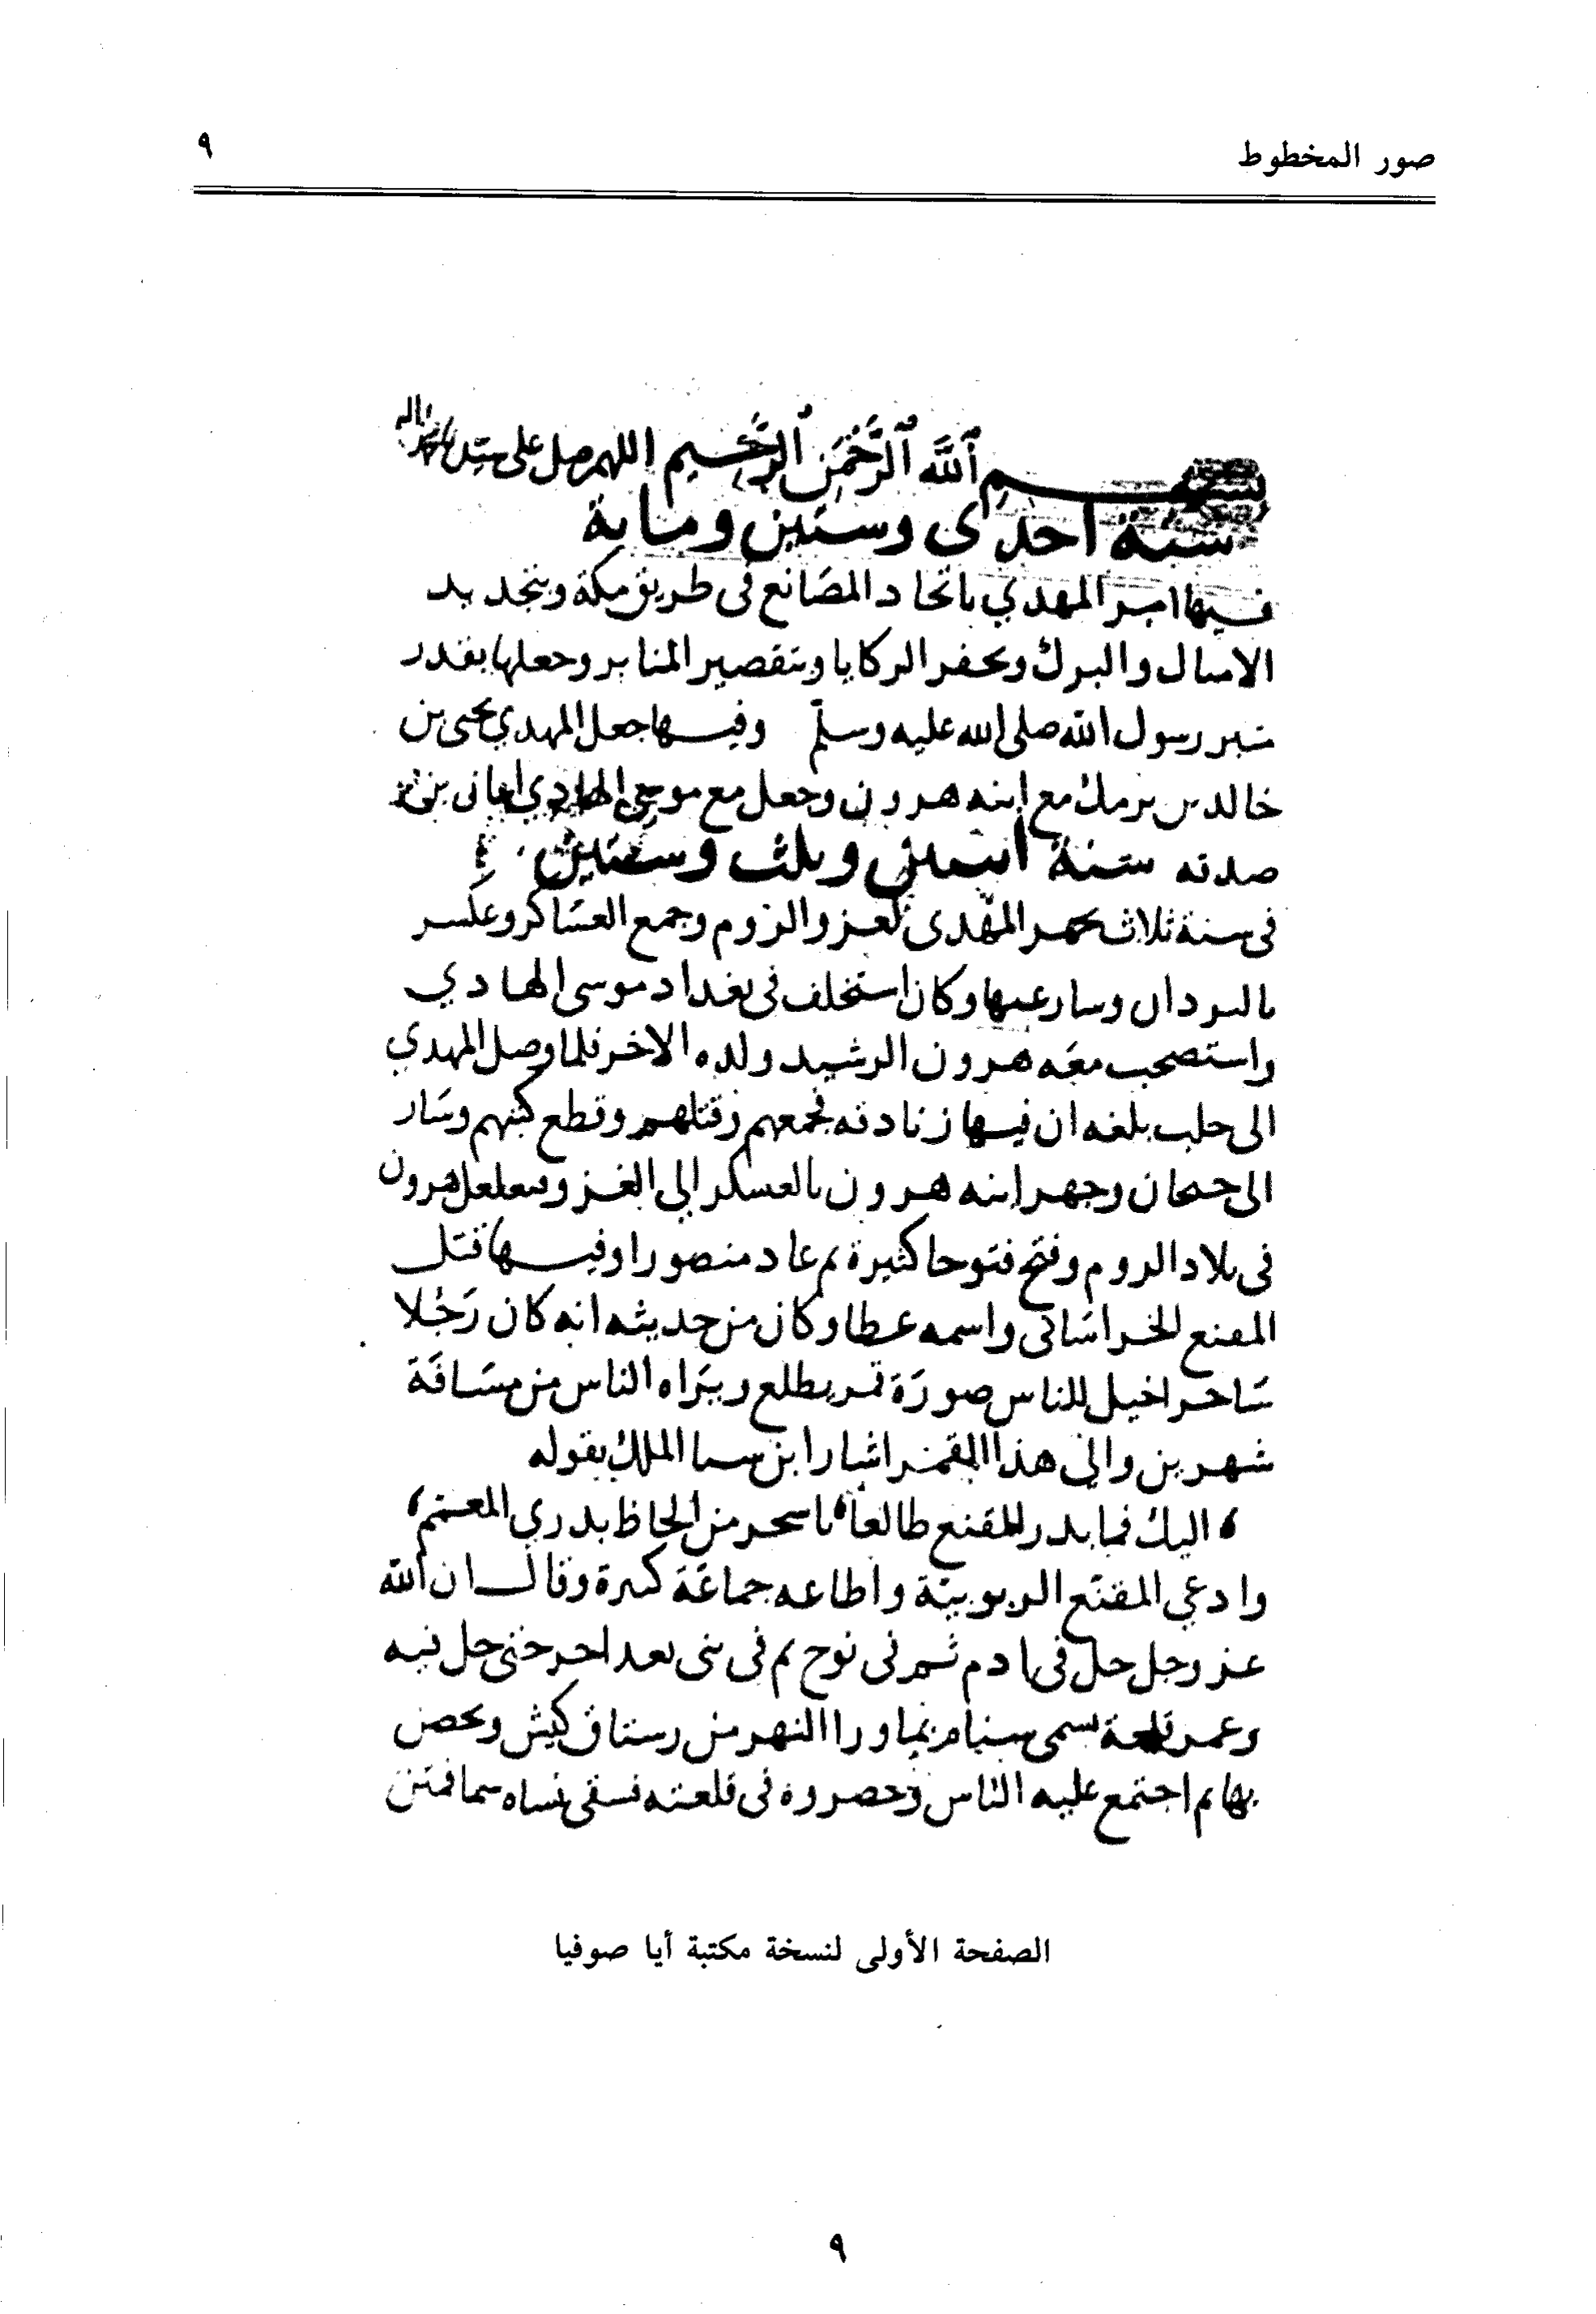 صور المخطوط
٩
بسم ٱللَّه ٱلرَّحْمٰن ٱلرَّحيم اللهم صل على سيدنا محمد واله
سنة احدى وستين وماية
فيها امر المهدي باتخاد المصانع فى طريق مكة وبتجديد
الاميال والبرك وبحفر الركايا وبتقصير المنابر وجعلها بقدر
منبر رسول الله صلى الله عليه وسلم وفيها جعل المهدي يحيى بن
خالد بن برمك مع ابنه هرون وجعل مع موسى الهادي ابان بن
صدقه سنة اثنين وثلث وستين
فى سنة ثلاث تجهز المهدى لغزو الروم وجمع العساكر وعسكر
بالبردان وسار عنها وكان استخلف فى بغداد موسى الهادي
واستصحب معه هرون الرشيد ولده الاخر فلما وصل المهدي
الى حلب بلغه ان فيها زنادقه فجمعهم وقتلهم وقطع كتبهم وسار
الى جيحان وجهز ابنه هرون بالعسكر الى الغزو هرون
فى بلاد الروم وفتح فتوحا كثيرة ثم عاد منصورا وفيها قتل
المقنع الخراسانى واسمه عطا وكان من حديثه انه كان رَجُلا
ساحرا خيل للناس صورة قمر يطلع ويراه الناس من مسافة
شهرين والى هذا القمر اشار ابن سنا الملك بقوله
اليك فما بدر المقنع طالعا باسحر من الحاظ بدري المعمم
وادعي المقنع الربوبية واطاعه جماعة كثيرة وقال ان الله
عز وجل حل فى ادم ثم فى نوح ثم فى نبى بعد اخر حتى حل فيه
وعمر قلعة تسمى سنام بما ورا النهر من رستاق كيش وتحصن
بها ثم اجتمع عليه الناس وحصروه فى قلعته فسقى نساه سما فمتن
الصفحة الأولى لنسخة مكتبة أيا صوفيا
٩